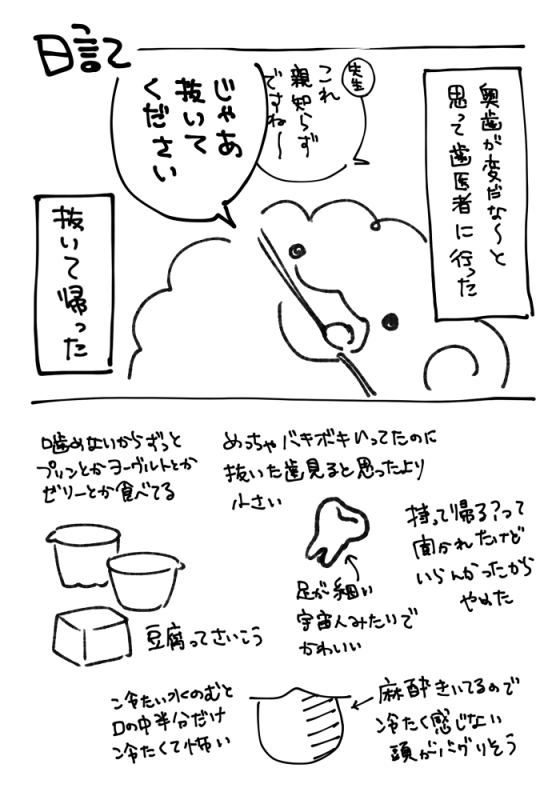 日記
奥歯が変だな〜と
思って歯医者に行った
先生
これ
親知らず
ですね〜
じゃあ
抜いて
ください
抜いて帰った
噛めないからずっと
プリンとかヨーグルトとか
ゼリーとか食べてる
豆腐ってさいこう
めっちゃバキボキいってたのに
抜いた歯見ると思ったより
小さい
足が細い
宇宙人みたいで
かわいい
持って帰る?って
聞かれたけど
いらんかったから
やめた
冷たい水のむと
口の中半分だけ
冷たくて怖い
麻酔きいてるので
冷たく感じない
頭がバグりそう